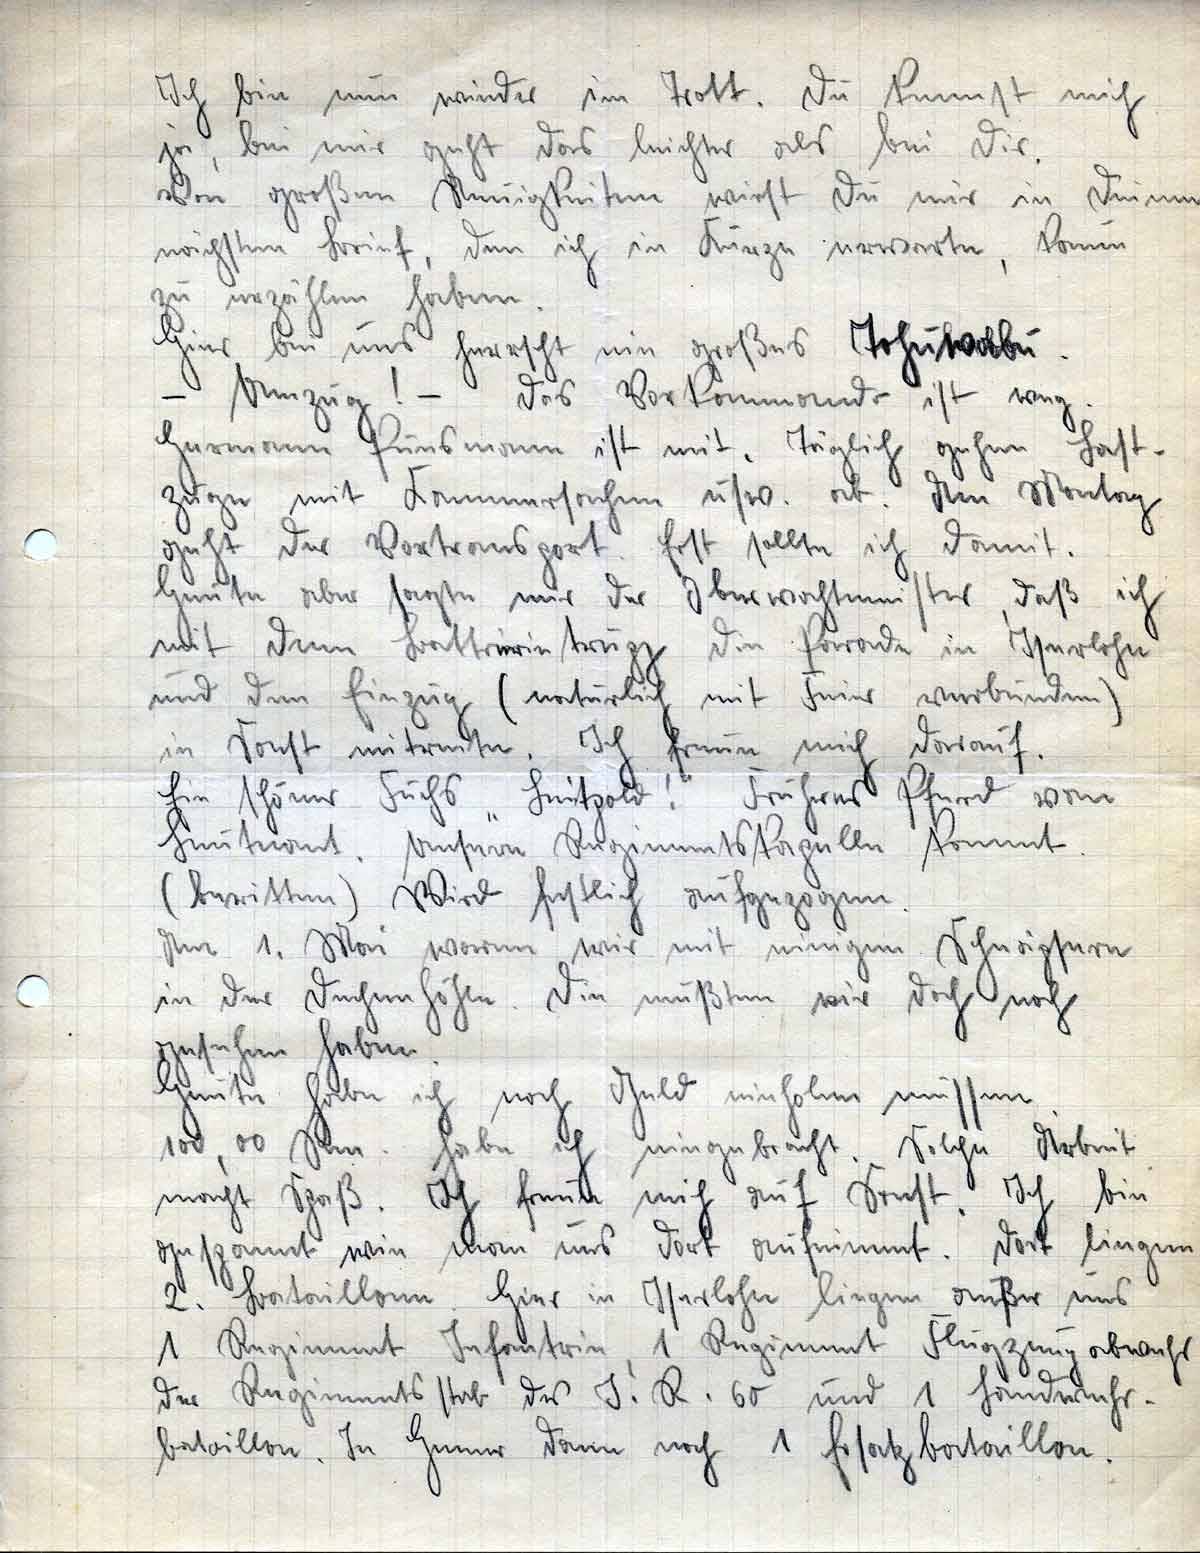 Ich bin nun wieder im Trott. Du kennst mich
ja, bei mir geht das leichter als bei Dir.
Von großen Neuigkeiten wirst Du mir in Deinem
nächsten Brief, den ich in Kürze erwarte, kaum
zu erzählen haben.
Hier bei uns herrscht ein großes Tohuwabu.
– Umzug! – Das Vorkommando ist weg.
Hermann ist mit. Täglich gehen Last-
züge mit Kammersachen usw. ab. Am Montag
geht der Vortransport. Erst sollte ich damit.
Heute aber sagte mir der Oberwachtmeister, daß ich
mit dem Batterietrupp die Parade in Iserlohn
und den Einzug (natürlich mit Feier verbunden)
in Soest mitreite. Ich freue mich darauf.
Ein schöner Fuchs „Luitpold!" Früheres Pferd vom
Leutnant. Unsere Regimentskapelle kommt.
(beritten) Wird festlich aufgezogen.
Am 1. Mai waren wir mit einigen
in der Dechenhöhle. Die mußten wir doch noch
gesehen haben.
Heute habe ich noch Geld einholen müssen.
100,00 Rm. habe ich eingebracht. Solche Arbeit
macht Spaß. Ich freue mich auf Soest. Ich bin
gespannt wie man uns dort aufnimmt. Dort liegen
2. Bataillone. Hier in Iserlohn liegen außer uns
1 Regiment Infantrie, 1 Regiment Flugzeugabwehr
der Regimentsstab des I. R. 60 und 1 Landwehr-
bataillon. In Hemer dann noch 1 Ersatzbataillon.